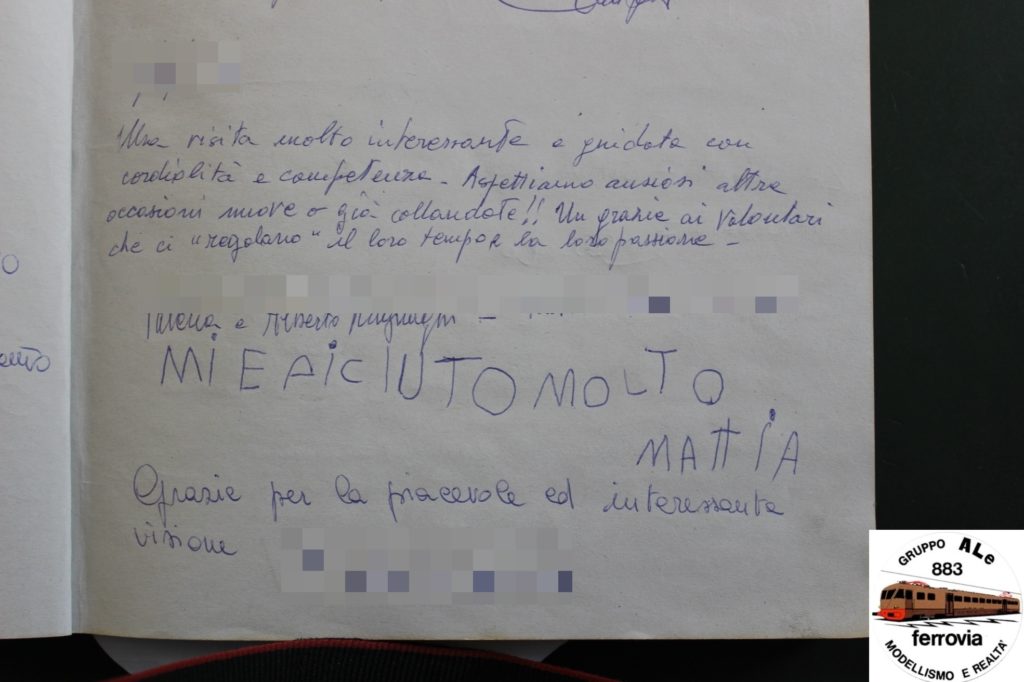 Una visita molto interessante e guidata con
cordialità e competenza. Aspettiamo ansiosi altre
occasioni nuove o già collaudate!! Un grazie ai volontari
che ci "regalano" il loro tempo e la loro passione -
e Alberto
MI E PICIUTO MOLTO
MATTIA
Grazie per la piacevole ed interessante
visione
GRUPPO ALe
883
ferrovia
MODELLISMO E REALTA'